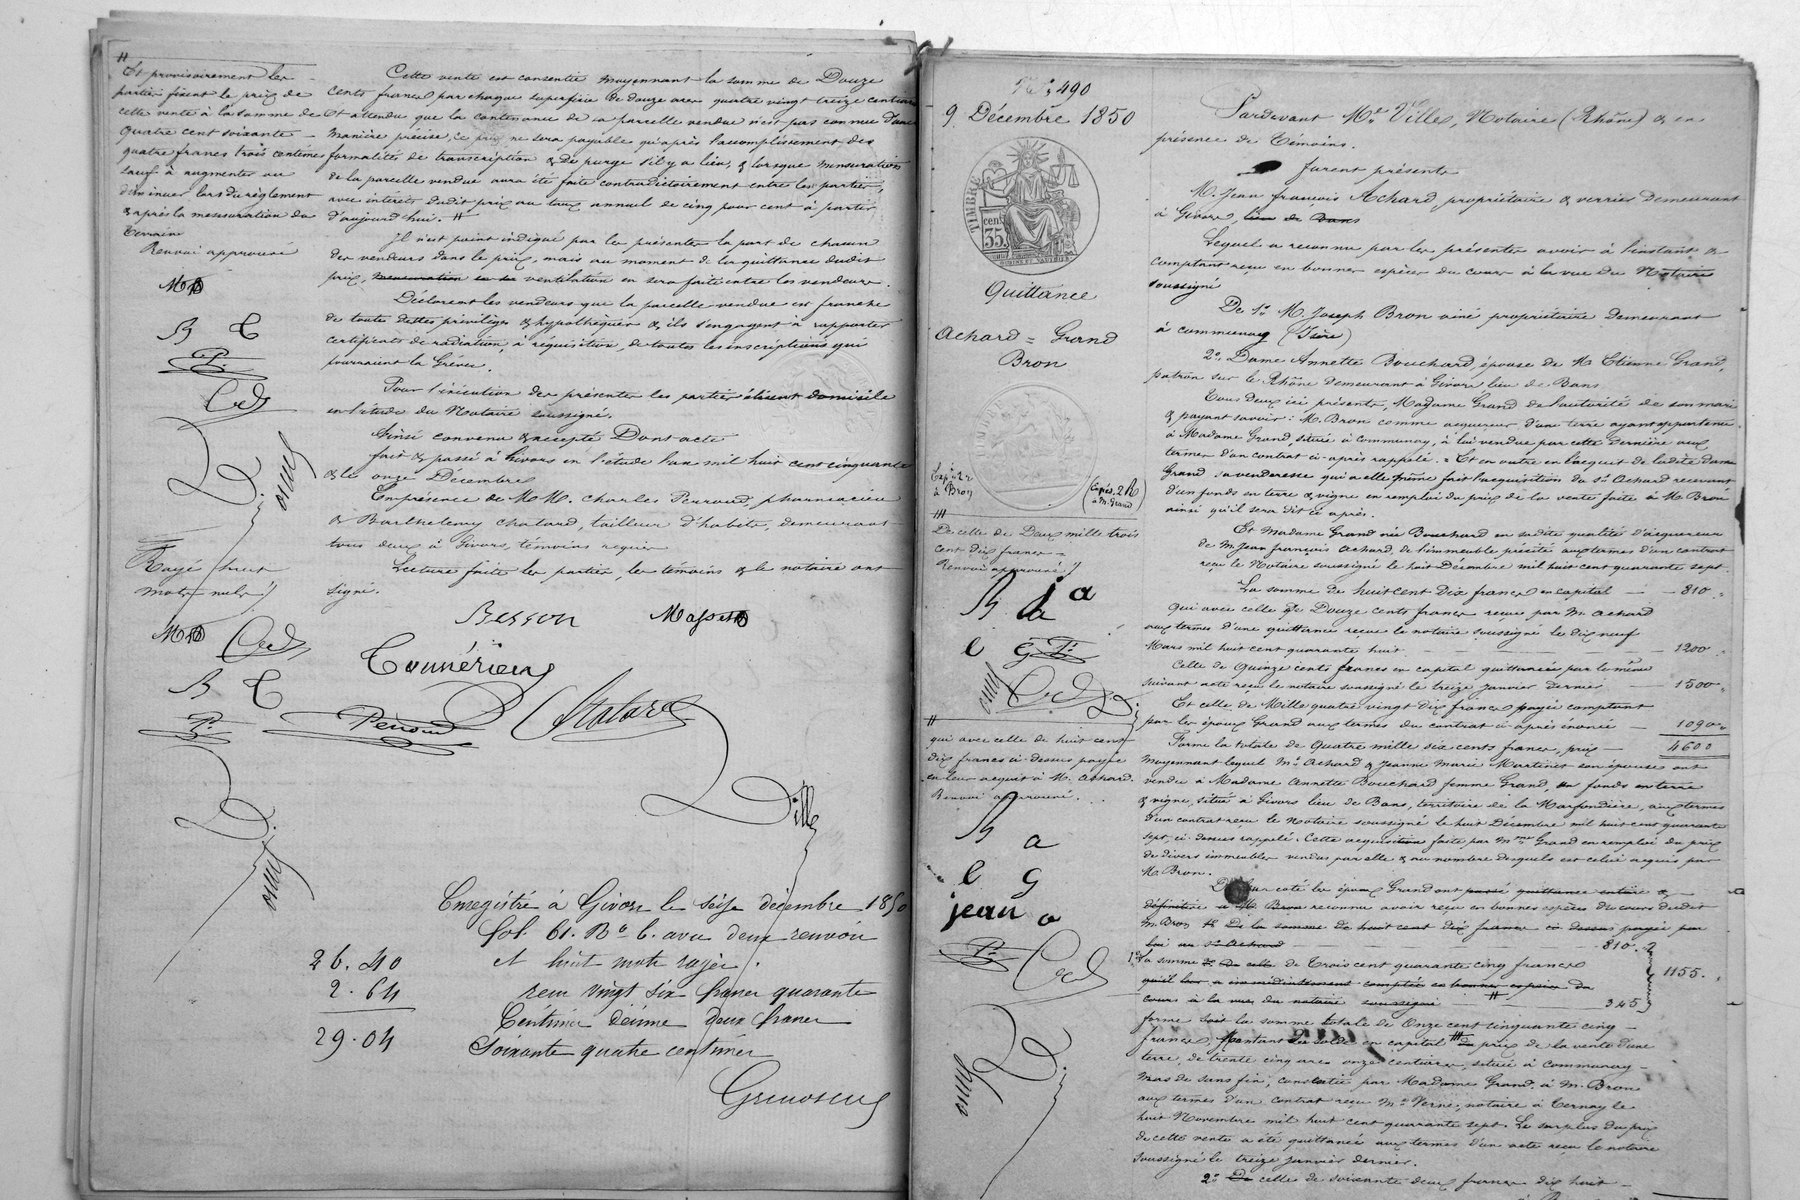 Et provisoirement les
parties fixent le prix de
cette vente à la somme de
quatre cent soixante
quatre francs trois centimes
sauf à augmenter ou
diminuer lors du règlement
& après la mensuration du
terrain
Renvoi approuvé
B C
P.
Rayé huit
mots nuls
B C
P.
Cette vente est consentie moyennant la somme de Douze
cents francs par chaque superficie de douze ares quatre vingt treize centiares
Et attendu que la contenance de la parcelle vendue n'est pas connue d'une
manière précise, ce prix ne sera payable qu'après l'accomplissement des
formalités de transcription & de purge s'il y a lieu, & lorsque mensuration
de la parcelle vendue aura été faite contradictoirement entre les parties,
avec intérêts dudit prix au taux annuel de cinq pour cent à partir
d'aujourd'hui. #
Il n'est point indiqué par les présentes la part de chacun
des vendeurs dans le prix, mais au moment de la quittance dudit
prix, ventilation en sera faite entre les vendeurs.
Déclarent les vendeurs que la parcelle vendue est franche
de toutes dettes privilèges & hypothèques & ils s'engagent à rapporter
certificats de radiation, à réquisition, de toutes les inscriptions qui
pourraient la Grêver.
Pour l'exécution des présentes les parties élisent domicile
en l'étude du Notaire soussigné.
Ainsi convenu & accepté Dont acte
fait & passé à Givors en l'étude l'an mil huit cent cinquante
& le onze Décembre
En présence de MM. Charles Perroud, pharmacien
& Barthelemy Chatard, tailleur d'habits, demeurant
tous deux à Givors, témoins requis
Lecture faite les parties, les témoins & le notaire ont
signé.
Besson
Perroud
Chatard
Ville
Enregistré à Givors le seize décembre 1850
fol. 61. Ro C. avec deux renvois
et huit mots rayés.
26.40 reçu vingt six francs quarante
2.64 Centimes décime deux francs
29.04 Soixante quatre centimes
No 490
9. Décembre 1850
TIMBRE
cent
35
Quittance
Achard = Grand
Bron
TIMBRE
Expé.
à Bron
à M. Grand
De celle de Deux mille trois
cent dix francs
Renvoi approuvé
B j a
P.
#
qui avec celle de huit cent
dix francs ci-dessus payée
en leur acquit à M. Achard.
Renvoi approuvé.
B a
C G
jean a
P.
Pardevant Me Ville, Notaire (Rhône) & en
présence de Témoins.
furent présents
M. Jean françois Achard propriétaire & verrier demeurant
à Givors, lieu de Bans
Lequel a reconnu par les présentes avoir à l'instant &
comptant reçu en bonnes espèces du cours à la vue du Notaire
soussigné
De 1o M. Joseph Bron ainé propriétaire demeurant
à communay (Isère)
2o Dame Annette Bouchard, épouse de M. Etienne Grand,
patron sur le Rhône demeurant à Givors lieu de Bans
Tous deux ici présents, Madame Grand de l'autorité de son mari
& payant savoir: M. Bron comme acquéreur d'une terre ayant appartenu
à Madame Grand, située à Communay, à lui vendue par cette dernière aux
termes d'un contrat ci-après rappelé. = Et en outre en l'acquit de ladite dame
Grand sa venderesse qui a elle même fait l'acquisition du Sr Achard recevant
d'un fonds en terre & vigne en remploi du prix de la vente faite à M. Bron
ainsi qu'il sera dit ci après.
Et Madame Grand née Bouchard en sadite qualité d'acquéreur
de M. Jean françois Achard, de l'immeuble précité aux termes d'un contrat
reçu le Notaire soussigné le huit Décembre mil huit cent quarante sept.
La somme de huit cent dix francs en capital — 810 "
Qui avec celle de Douze cents francs reçue par M. Achard
aux termes d'une quittance reçue le notaire soussigné le dix neuf
Mars mil huit cent quarante huit — 1200 "
Celle de Quinze cents francs en capital quittancée par le même
suivant acte reçu le notaire soussigné le treize Janvier dernier — 1500 "
Et celle de Mille quatre vingt dix francs payée comptant
par les époux Grand aux termes du contrat ci-après énoncé — 1090 "
Forme la totale de Quatre mille six cents francs, prix — 4600
Moyennant lequel Mr Achard & Jeanne Marie Martinet son épouse ont
vendu à Madame Annette Bouchard femme Grand, un fonds en terre
& vigne, situé à Givors lieu de Bans, territoire de la Marfondière, aux termes
d'un contrat reçu le Notaire soussigné le huit Décembre mil huit cent quarante
sept, ci-dessus rappelé. Cette acquisition faite par Mme Grand en remploi du prix
de divers immeubles vendus par elle & au nombre desquels est celui acquis par
M. Bron.
De leur coté les époux Grand ont passé quittance entière &
définitive à M. Bron reconnu avoir reçu en bonnes espèces du cours dudit
M. Bron De la somme de huit cent dix francs ci dessus payée par
lui au Sr Achard — 810.
1o La somme de Trois cent quarante cinq francs — 1155.
qu'il leur a immédiatement comptée en bonnes espèces du
cours à la vue du notaire soussigné # 345
forme la somme totale de Onze cent cinquante cinq
francs, Montant en capital du prix de la vente d'une
terre, de trente cinq ares onze centiares, située à communay
Mas de sans fin, consentie par Madame Grand, à M. Bron
aux termes d'un contrat reçu Me Verne, notaire à Ternay le
huit Novembre mil huit cent quarante sept. Le surplus du prix
de cette vente a été quittancé aux termes d'un acte reçu le notaire
soussigné le treize janvier dernier.
2o De celle de soixante deux francs dix huit